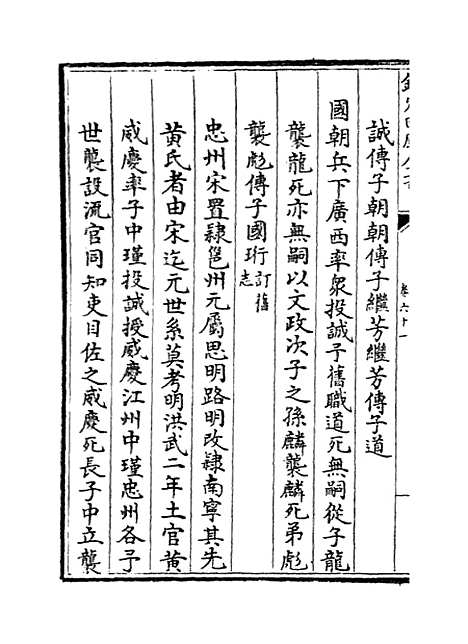 欽定四庫全書
卷六十一
誠傳子朝朝傳子繼芳繼芳傳子道
國朝兵下廣西率衆投誠予舊職道死無嗣從子龍
襲龍死亦無嗣以文政次子之孫麟襲麟死弟彪
襲彪傳子國珩訂舊志
忠州宋置隸邕州元屬思明路明改隸南寧其先
黄氏者由宋迄元世系莫考明洪武二年土官黄
威慶率子中瑾投誠授威慶江州中瑾忠州各予
世襲設流官同知吏目佐之威慶死長子中立襲